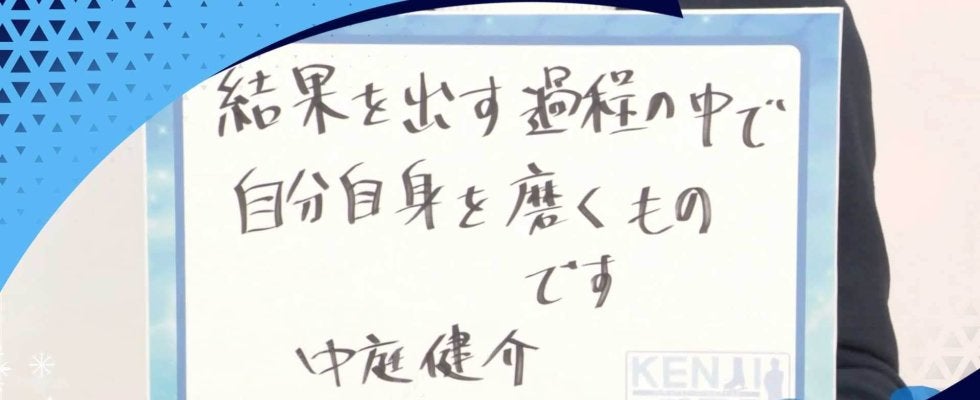 結果を出す過程の中で
自分自身を磨くもの
です
中庭健介
KENJI